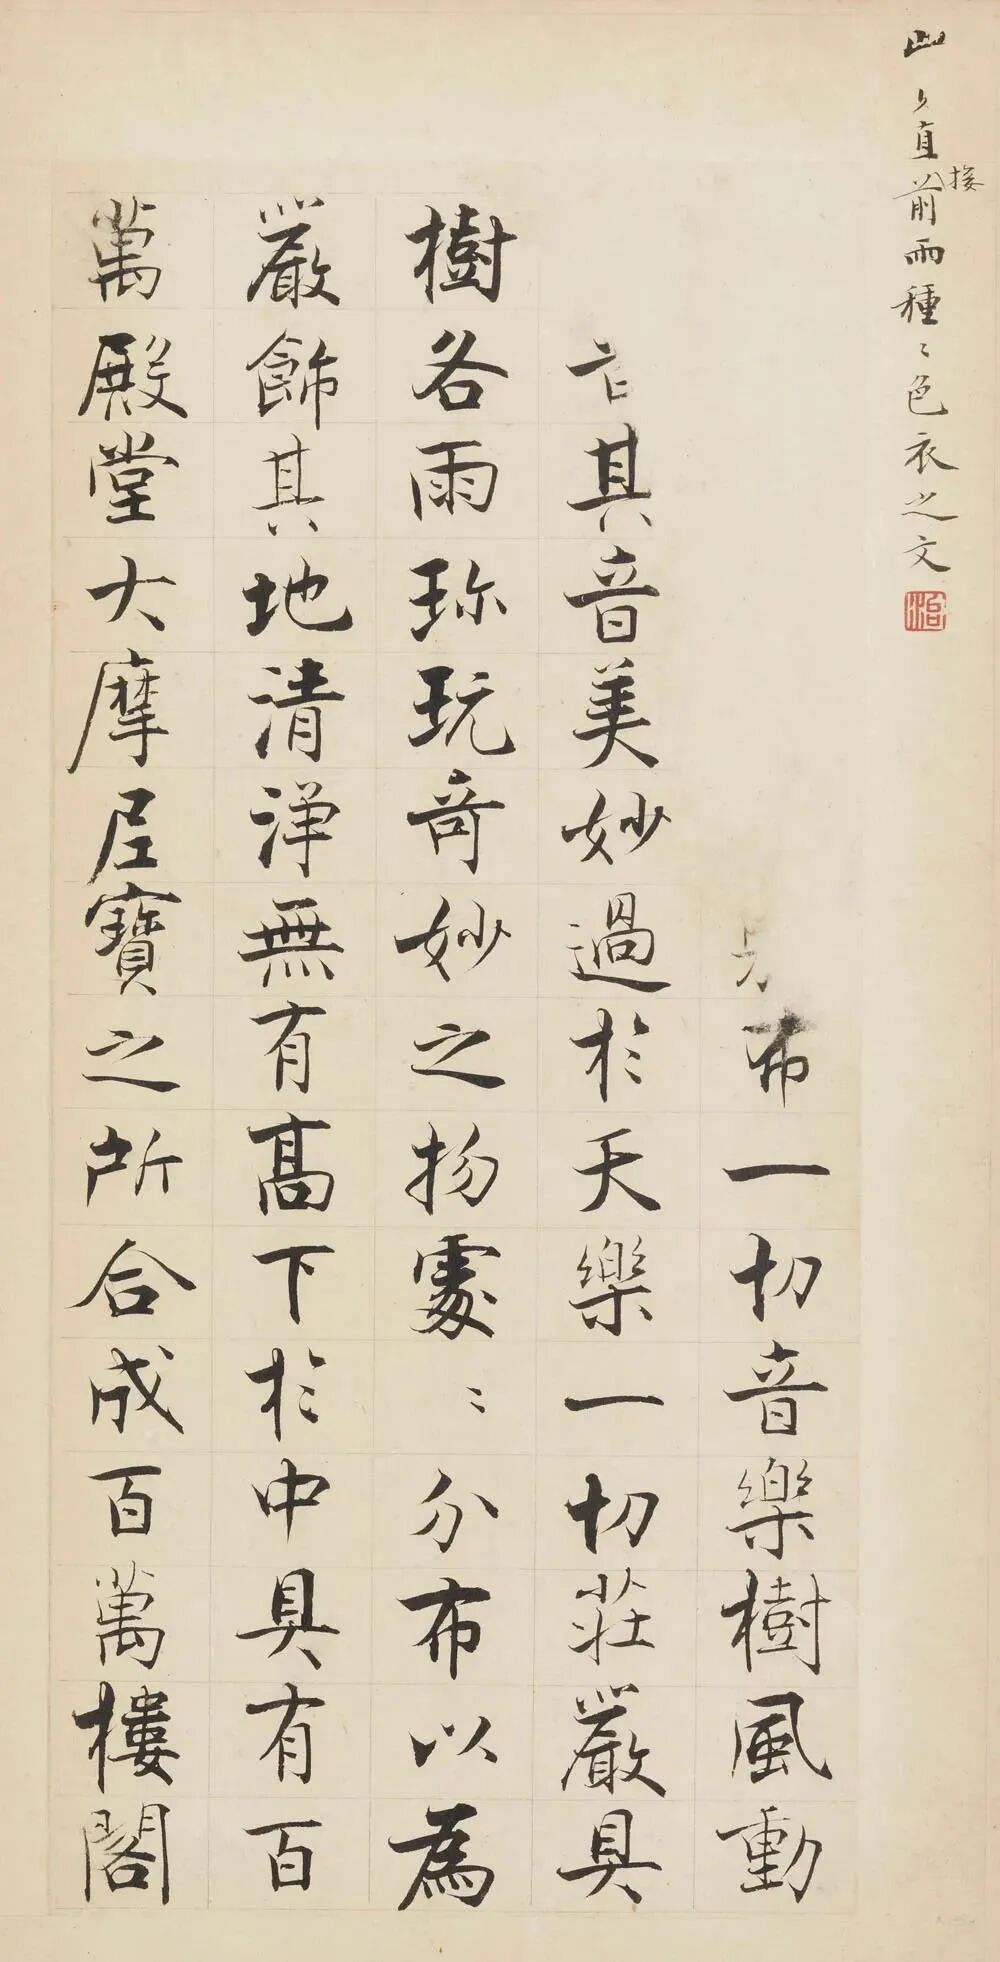 直接前雨種〻色衣之文
布一切音樂樹風動
其音美妙過於天樂一切莊嚴具
樹各雨珎玩奇妙之物處〻分布以為
嚴飾其地清淨無有高下於中具有百
萬殿堂大摩尼寶之所合成百萬樓閣